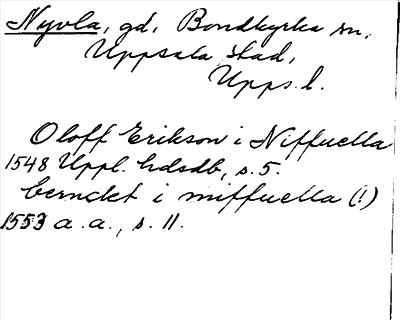 Nyvla, gd, Bondkyrka sn,
Uppsala stad,
Upps. l.
Oloff Erikson i Niffuella
1548 Uppl. hdsdb, s. 5.
berndet i miffuella (!)
1553 a. a., s. 11.